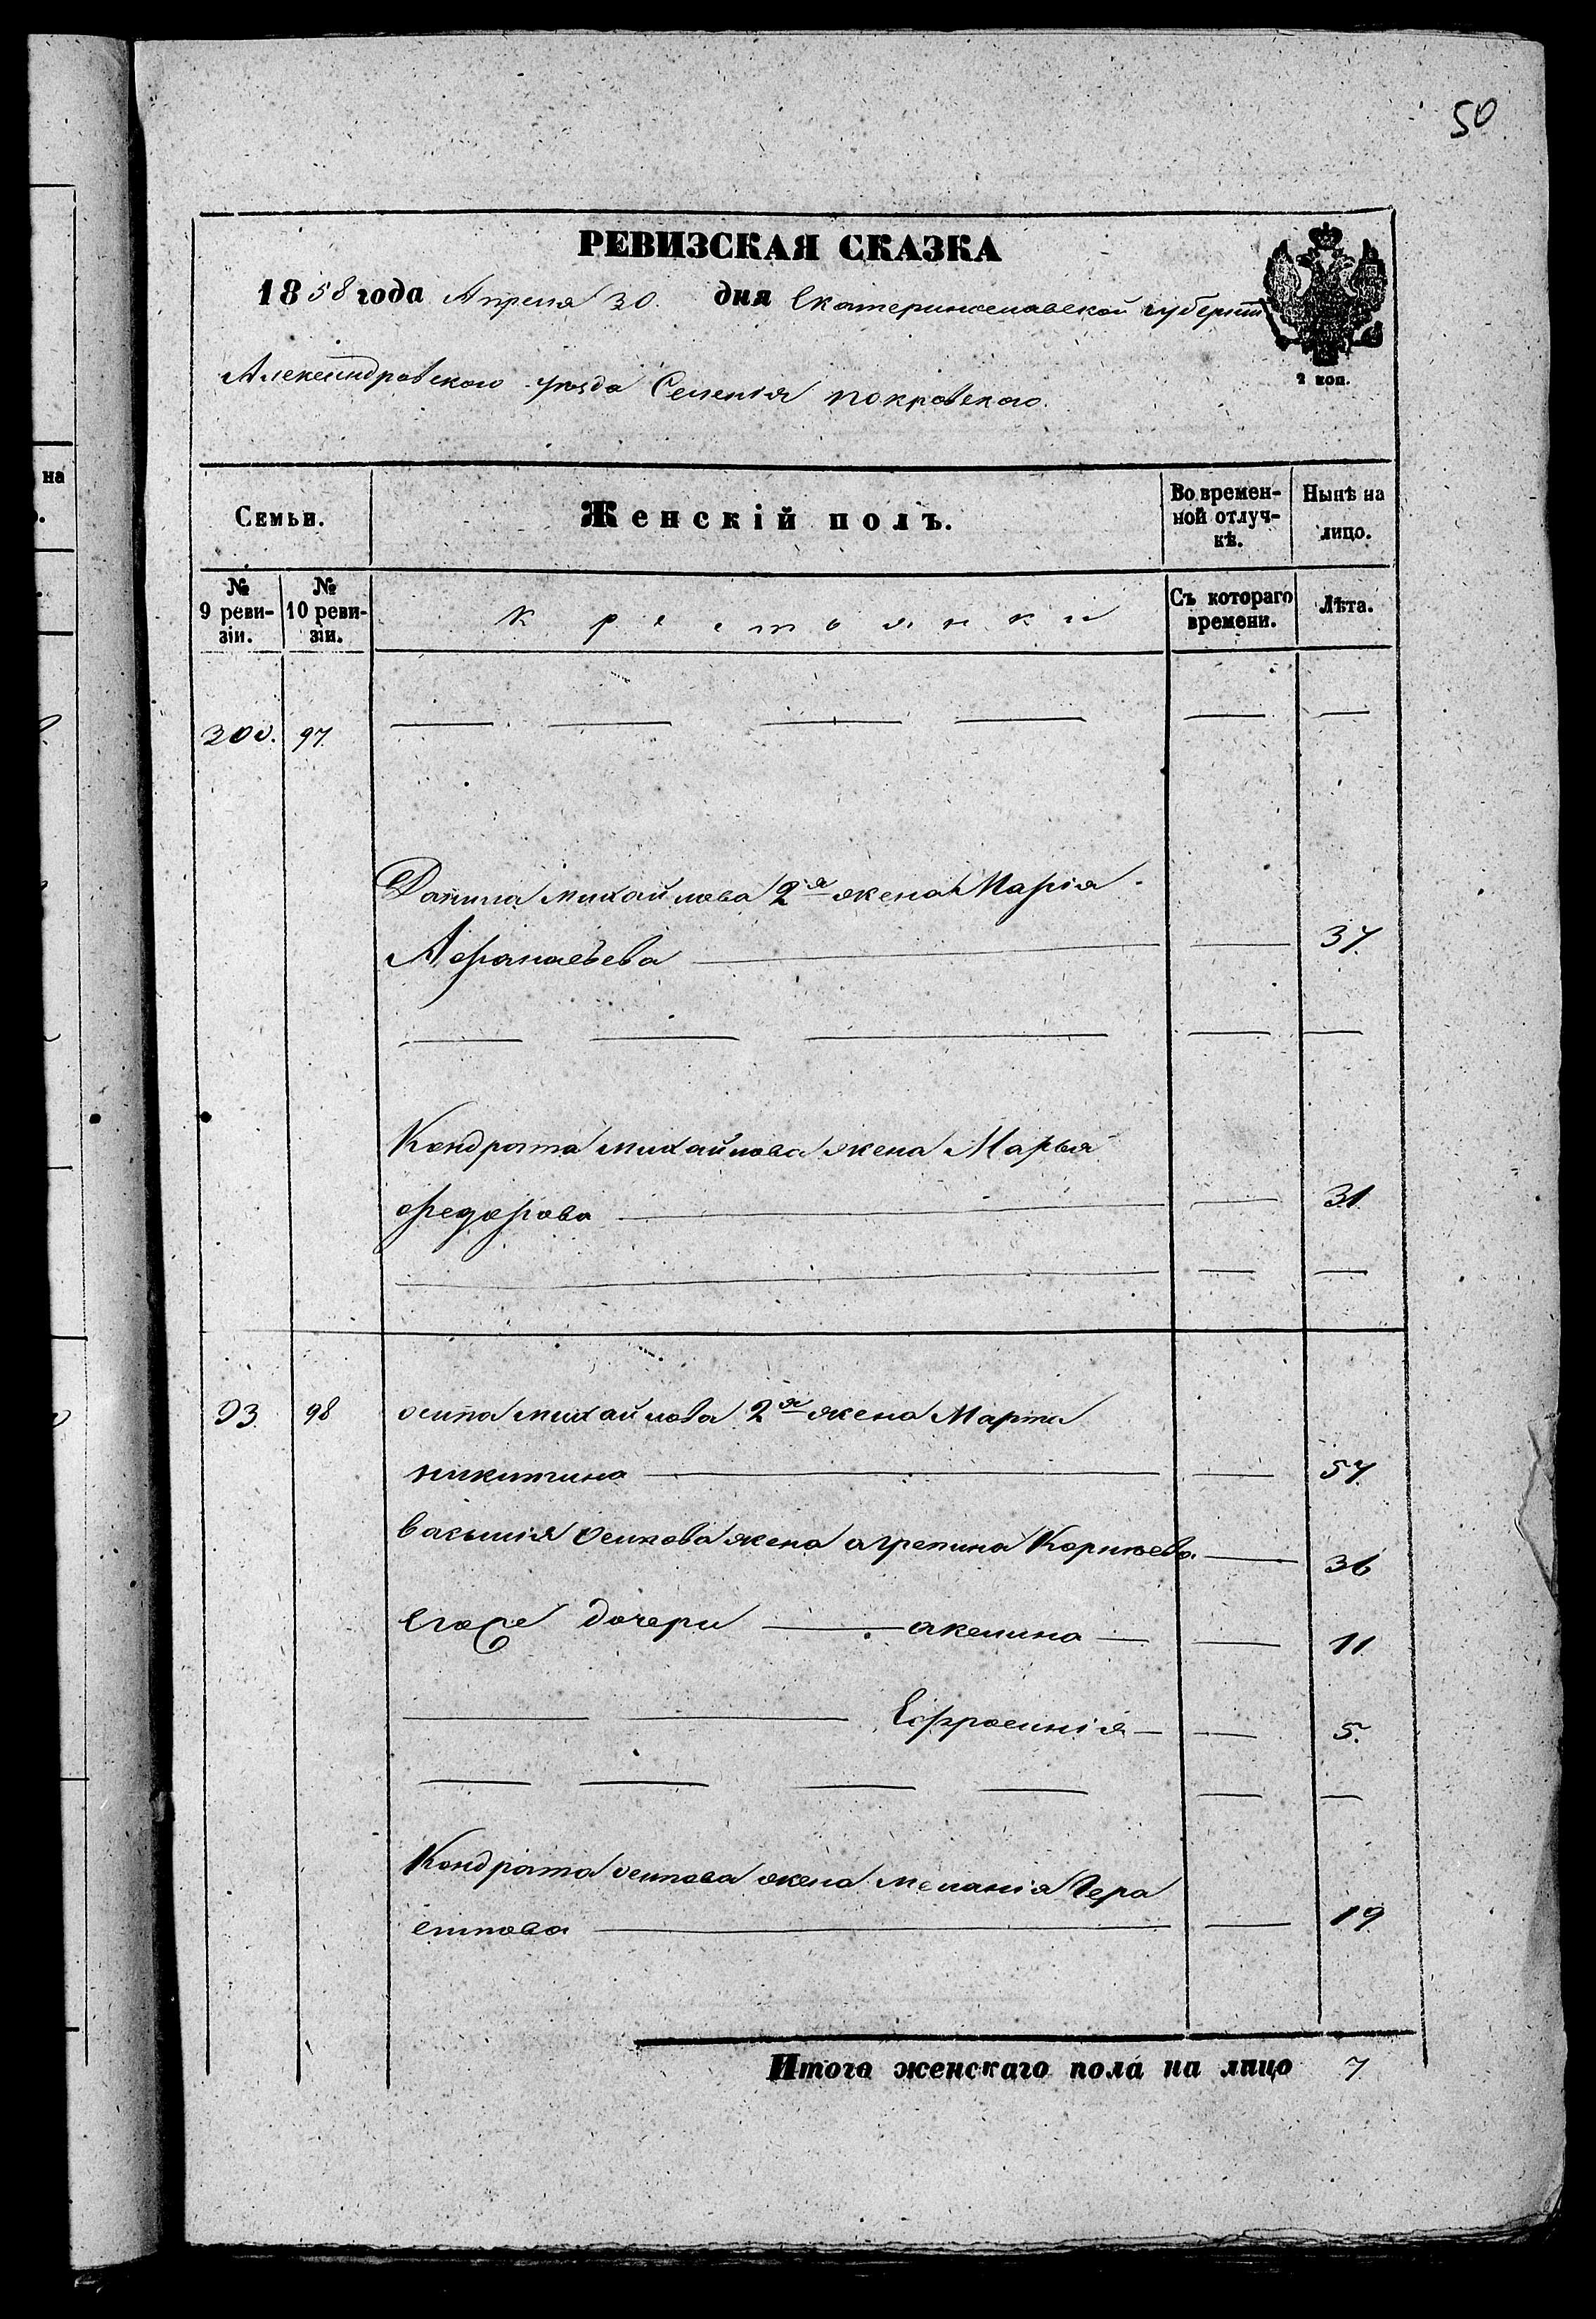 50
РЕВИЗСКАЯ СКАЗКА
1858 года Апреля 30. дня Екатеринославской губерніи
2 коп.
Александровскаго уѣзда Селенія покровскаго.
на
Семьи. Женскій полъ. Во времен-ной отлуч-кѣ. Нынѣ на лицо.
№ 9 реви-зіи. № 10 реви-зіи. Крестьянки Съ котораго времени. Лѣта.
200. 97.
Данила михайлова 2я жена Марія
Афанасьева 37.
Кондрата михайлова жена Марья
федорова 31.
93 98 осипа михайлова 2я жена Марта
никитина 57.
василія осипова жена агрепина Корнѣева 36
Егоже дочери акелина 11.
Ефросинія 5.
Кондрата осипова жена меланія Гера
симова 19.
Итого женскаго пола на лицо 7